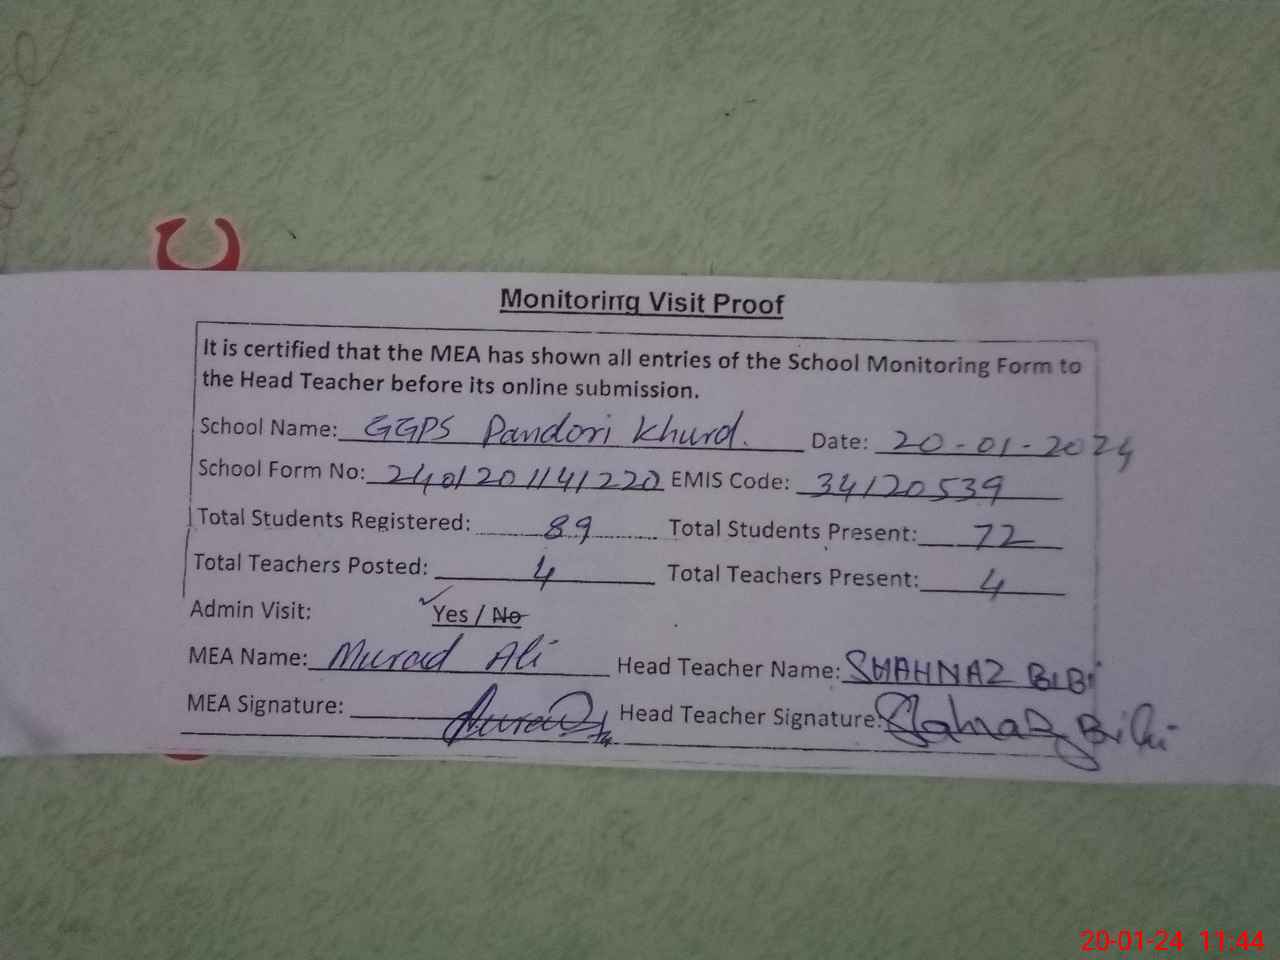 Monitoring Visit Proof
It is certified that the MEA has shown all entries of the School Monitoring Form to
the Head Teacher before its online submission.
School Name: GGPS Pandori Khurd. Date: 20-01-2024
School Form No: 2401201141220 EMIS Code: 34120539
Total Students Registered: 89 Total Students Present: 72
Total Teachers Posted: 4 Total Teachers Present: 4
Admin Visit: Yes / No
MEA Name: Murad Ali Head Teacher Name: SHAHNAZ BIBI
MEA Signature: Head Teacher Signature: Shahnaz Bibi
20-01-24 11:44